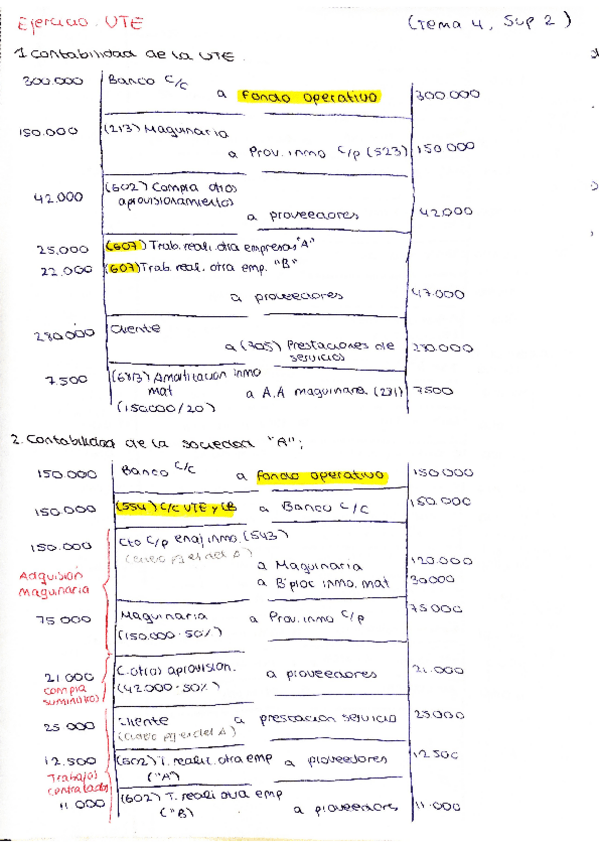 Ejercicio UTE (Tema 4, Sup 2)
1. Contabilidad de la UTE.
300.000 Banco C/C
a Fondo operativo 300.000
150.000 (213) Maquinaria
a Prov. inmo C/p (523) 150.000
(602) Compra otros
42.000 aprovisionamientos
a proveedores 42.000
25.000 (607) Trab. reali. otra empresas "A"
22.000 (607) Trab. reali. otra emp. "B"
a proveedores 47.000
280.000 Cliente
a (705) Prestaciones de 280.000
servicios
7.500 (681) Amortización inmo
mat a A.A maquinaria. (281) 7500
(150000/20)
2. Contabilidad de la sociedad "A";
150.000 Banco C/C
a Fondo operativo 150.000
150.000 (554) C/C UTE y CB a Banco C/C 150.000
150.000 Cto C/p enaj. inmo. (543)
a Maquinaria 120.000
Adquisión a Bº proc inmo. mat 30000
Maquinaria
75.000 Maquinaria a Prov. inmo C/p 75000
(150.000·50%)
21000 C. otros aprovision. a proveedores 21.000
compra (42.000·50%)
suministros
25 000 Cliente a prestacion servicio 25000
12.500 (602) T. realiz. otra emp a proveedores 12500
Trabajos ("A")
contratados
11 000 (602) T. reali otra emp a proveedores 11.000
("B")